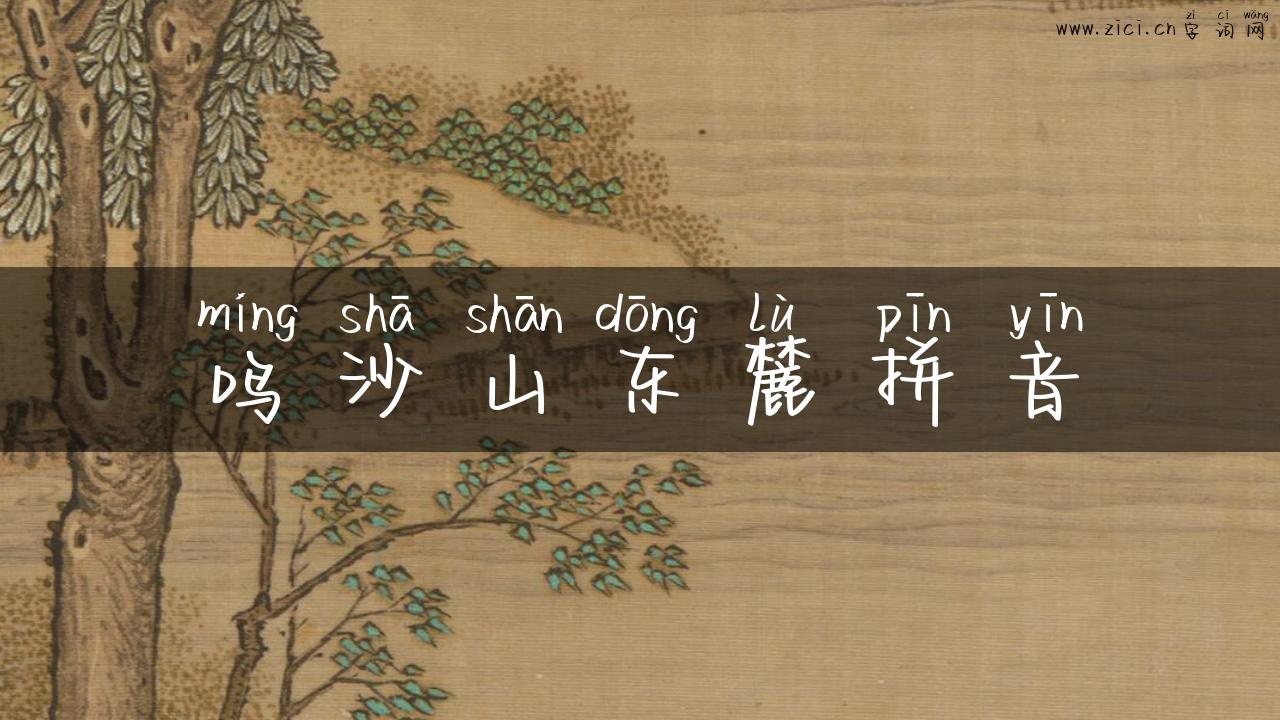 zì cí wǎng
www.zici.cn 字词网
míng shā shān dōng lù pīn yīn
鸣沙山东麓拼音